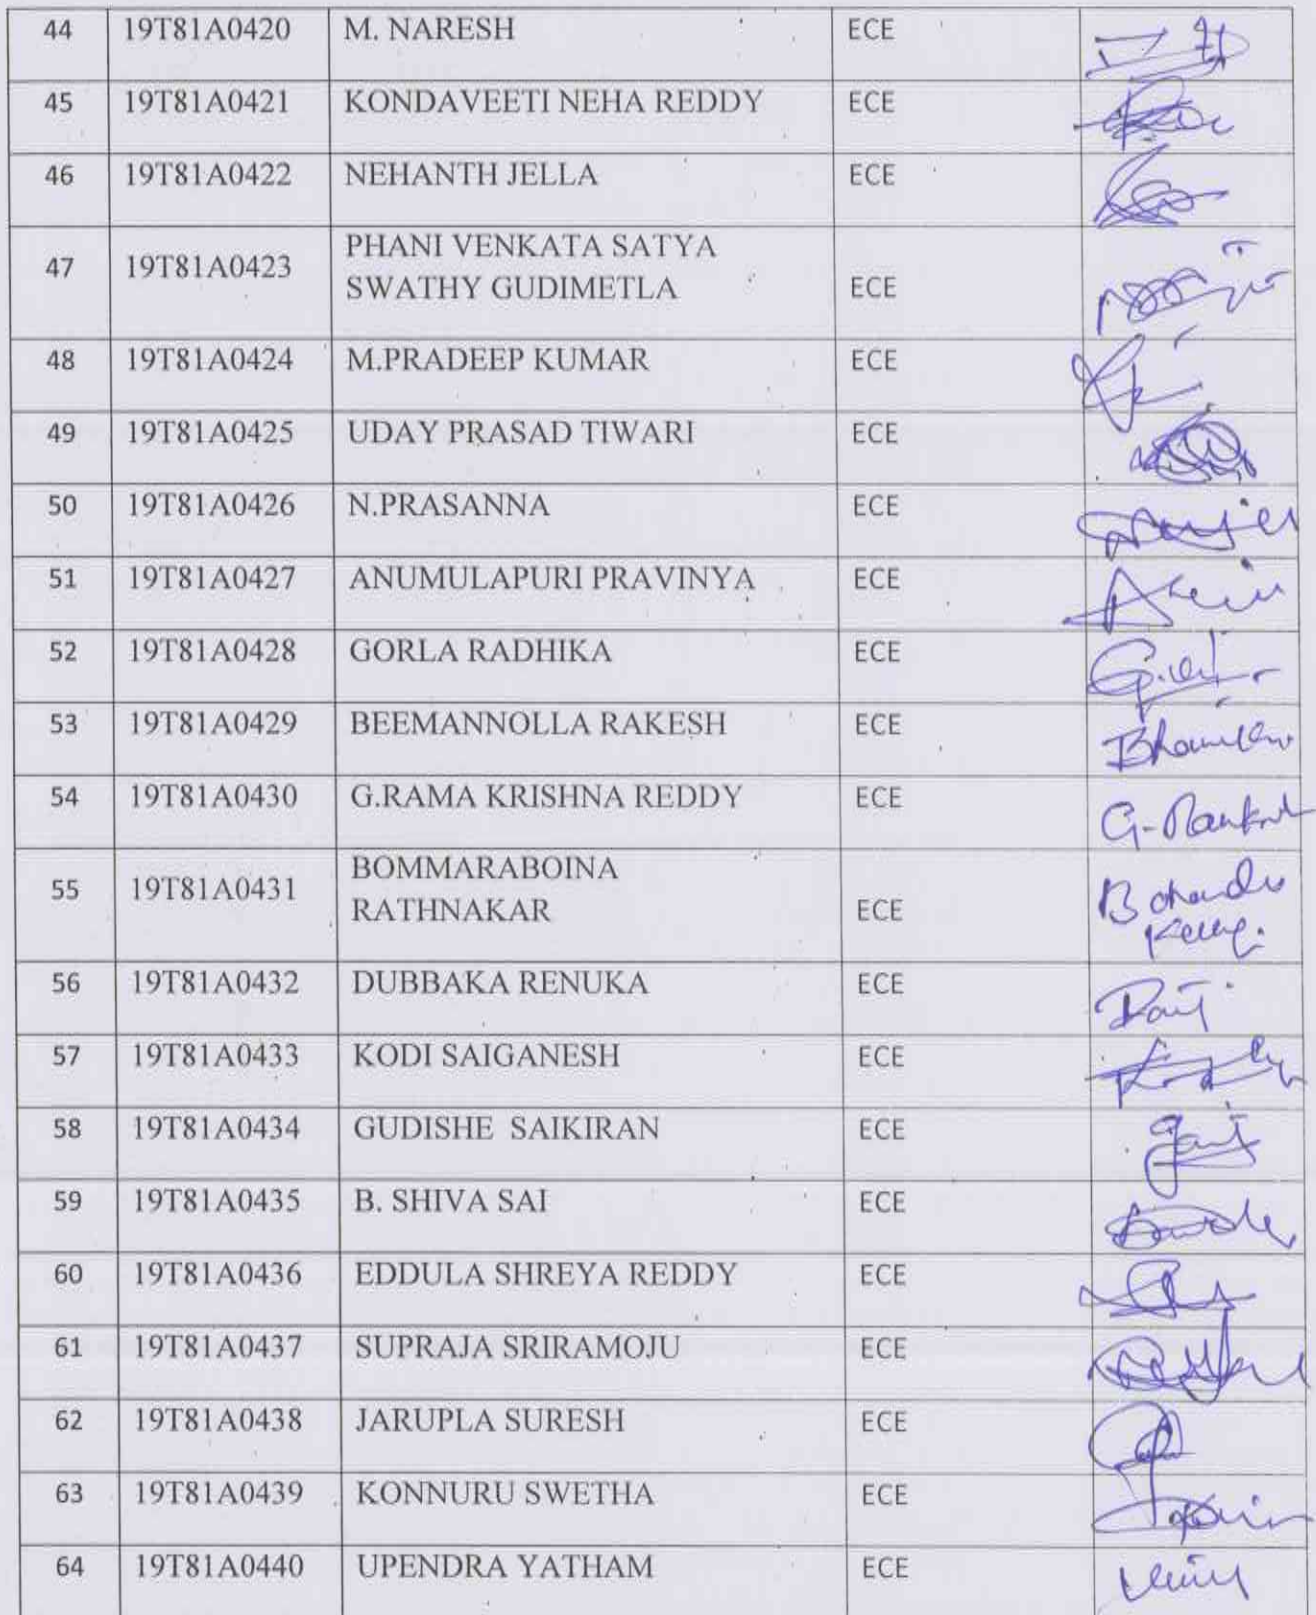 44 19T81A0420 M. NARESH ECE
45 19T81A0421 KONDAVEETI NEHA REDDY ECE
46 19T81A0422 NEHANTH JELLA ECE
47 19T81A0423 PHANI VENKATA SATYA
SWATHY GUDIMETLA ECE
48 19T81A0424 M.PRADEEP KUMAR ECE
49 19T81A0425 UDAY PRASAD TIWARI ECE
50 19T81A0426 N.PRASANNA ECE
51 19T81A0427 ANUMULAPURI PRAVINYA ECE
52 19T81A0428 GORLA RADHIKA ECE
53 19T81A0429 BEEMANNOLLA RAKESH ECE
54 19T81A0430 G.RAMA KRISHNA REDDY ECE
55 19T81A0431 BOMMARABOINA
RATHNAKAR ECE
56 19T81A0432 DUBBAKA RENUKA ECE
57 19T81A0433 KODI SAIGANESH ECE
58 19T81A0434 GUDISHE SAIKIRAN ECE
59 19T81A0435 B. SHIVA SAI ECE
60 19T81A0436 EDDULA SHREYA REDDY ECE
61 19T81A0437 SUPRAJA SRIRAMOJU ECE
62 19T81A0438 JARUPLA SURESH ECE
63 19T81A0439 KONNURU SWETHA ECE
64 19T81A0440 UPENDRA YATHAM ECE